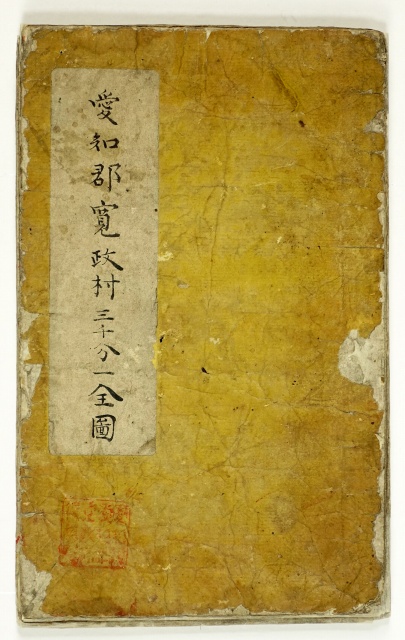 愛知郡寛政村三千分一全圖